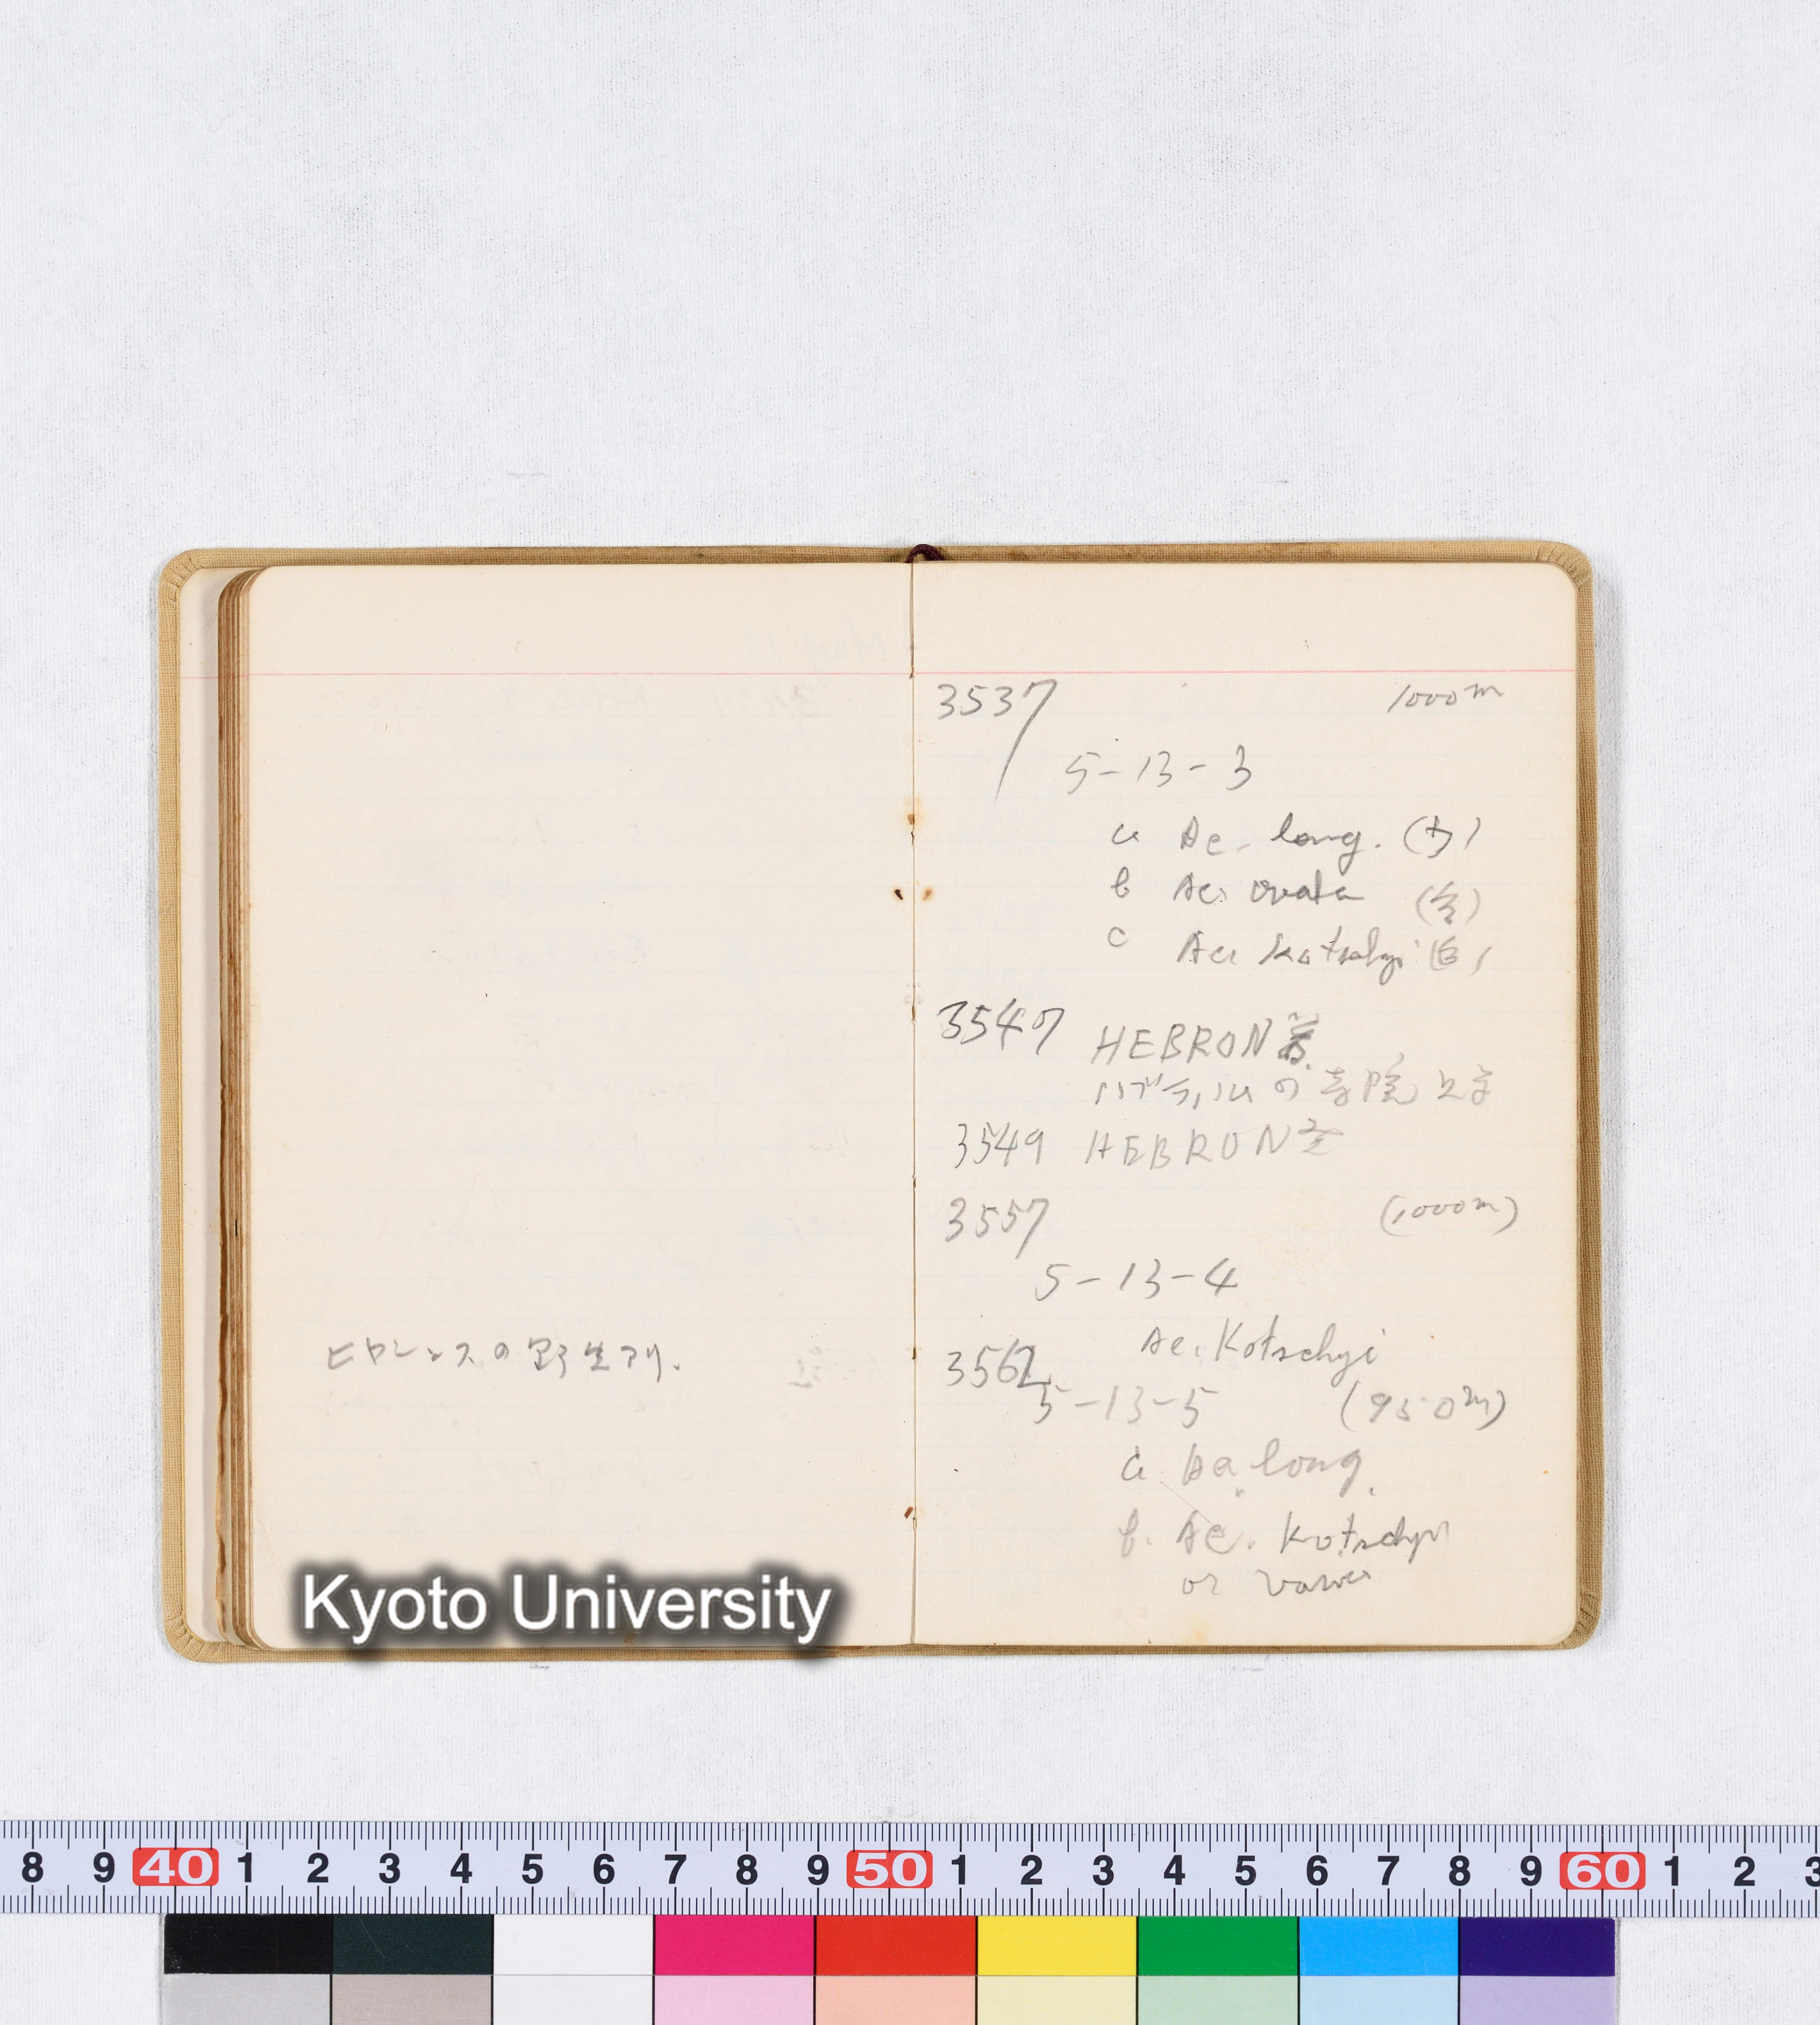 ヒロレンスの野生アリ.
Kyoto University
3537 1000m
5-13-3
a Ae. long.
b Ae. ovata
c Ae. Kotschyi
3547 HEBRON着
の寺院
3549 HEBRON
3557 (1000m)
5-13-4
Ae. Kotschyi
3562
5-13-5 (950m)
a Ae long.
b. Ae. Kotschyi
or
8 9 40 1 2 3 4 5 6 7 8 9 50 1 2 3 4 5 6 7 8 9 60 1 2 3